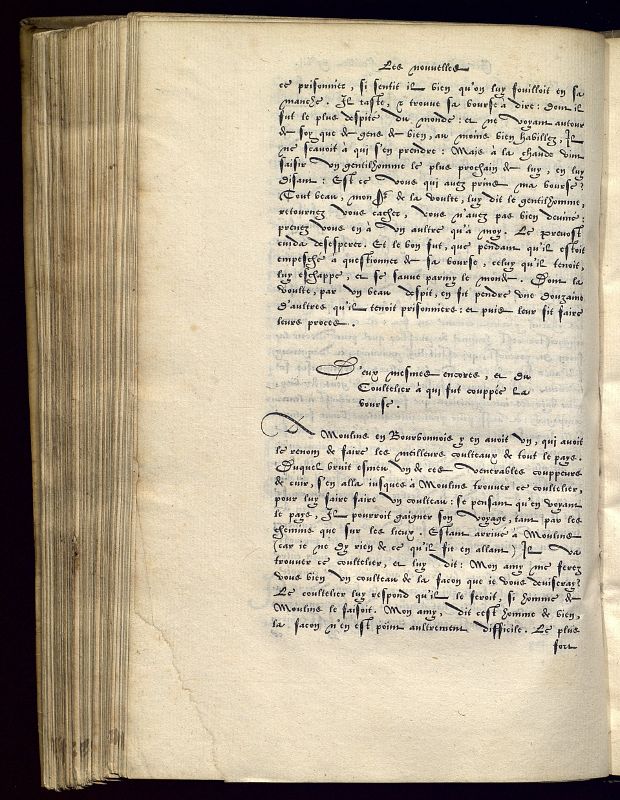 Les nouuelles
ce prisonnier, si sentit il bien qu'on luy fouilloit en sa
manche. Il taste, & trouue sa bourse à dire: dont il
fut le plus despité du monde: et ne voyant autour
de soy que de gens de bien, au moins bien habillez, Il
ne scauoit à qui s'en prendre: Mais à la chaude vint
saisir vn gentilhomme le plus prochain de luy, en luy
disant: Est ce vous qui auez prins ma bourse?
Tout beau, mon de la voulte, luy dit le gentilhomme,
retournez vous cacher, vous n'auez pas bien deuiné:
prenez vous en à vn aultre qu'à moy. Le preuost
cuida desesperer. Et le bon fut, que pendant qu'il estoit
empesché à questionner de sa bourse, celuy qu'il tenoit,
luy eschappe, et se sauue parmy le monde. Dont la
voulte, par vn beau despit, en fit pendre vne douzaine
d'aultres qu'il tenoit prisonniers: et puis leur fit faire
leurs proces.
D'eux mesmes encores, et du
Coultelier à qui fut couppée la
bourse.
A Moulins en Bourbonnois y en auoit vn, qui auoit
le renom de faire les meilleurs coulteaux de tout le pays.
Duquel bruit esmeu vn de ces venerables couppeurs
de cuir, s'en alla iusques à Moulins trouuer ce coultelier,
pour luy faire faire vn coulteau: se pensant qu'en voyant
le pays, Il pourroit gaigner son voyage, tant par les
chemins que sur les lieux. Estant arriué à Moulins
(car ie ne dy rien de ce qu'il fit en allant) Il va
trouuer ce coultelier, et luy dit: Mon amy me ferez
vous bien vn coulteau de la façon que ie vous deuiseray?
Le coultelier luy respond qu'il le feroit, si homme de
Moulins le faisoit. Mon amy, dit cest homme de bien,
la façon n'en est point aultrement difficile. Le plus
fort